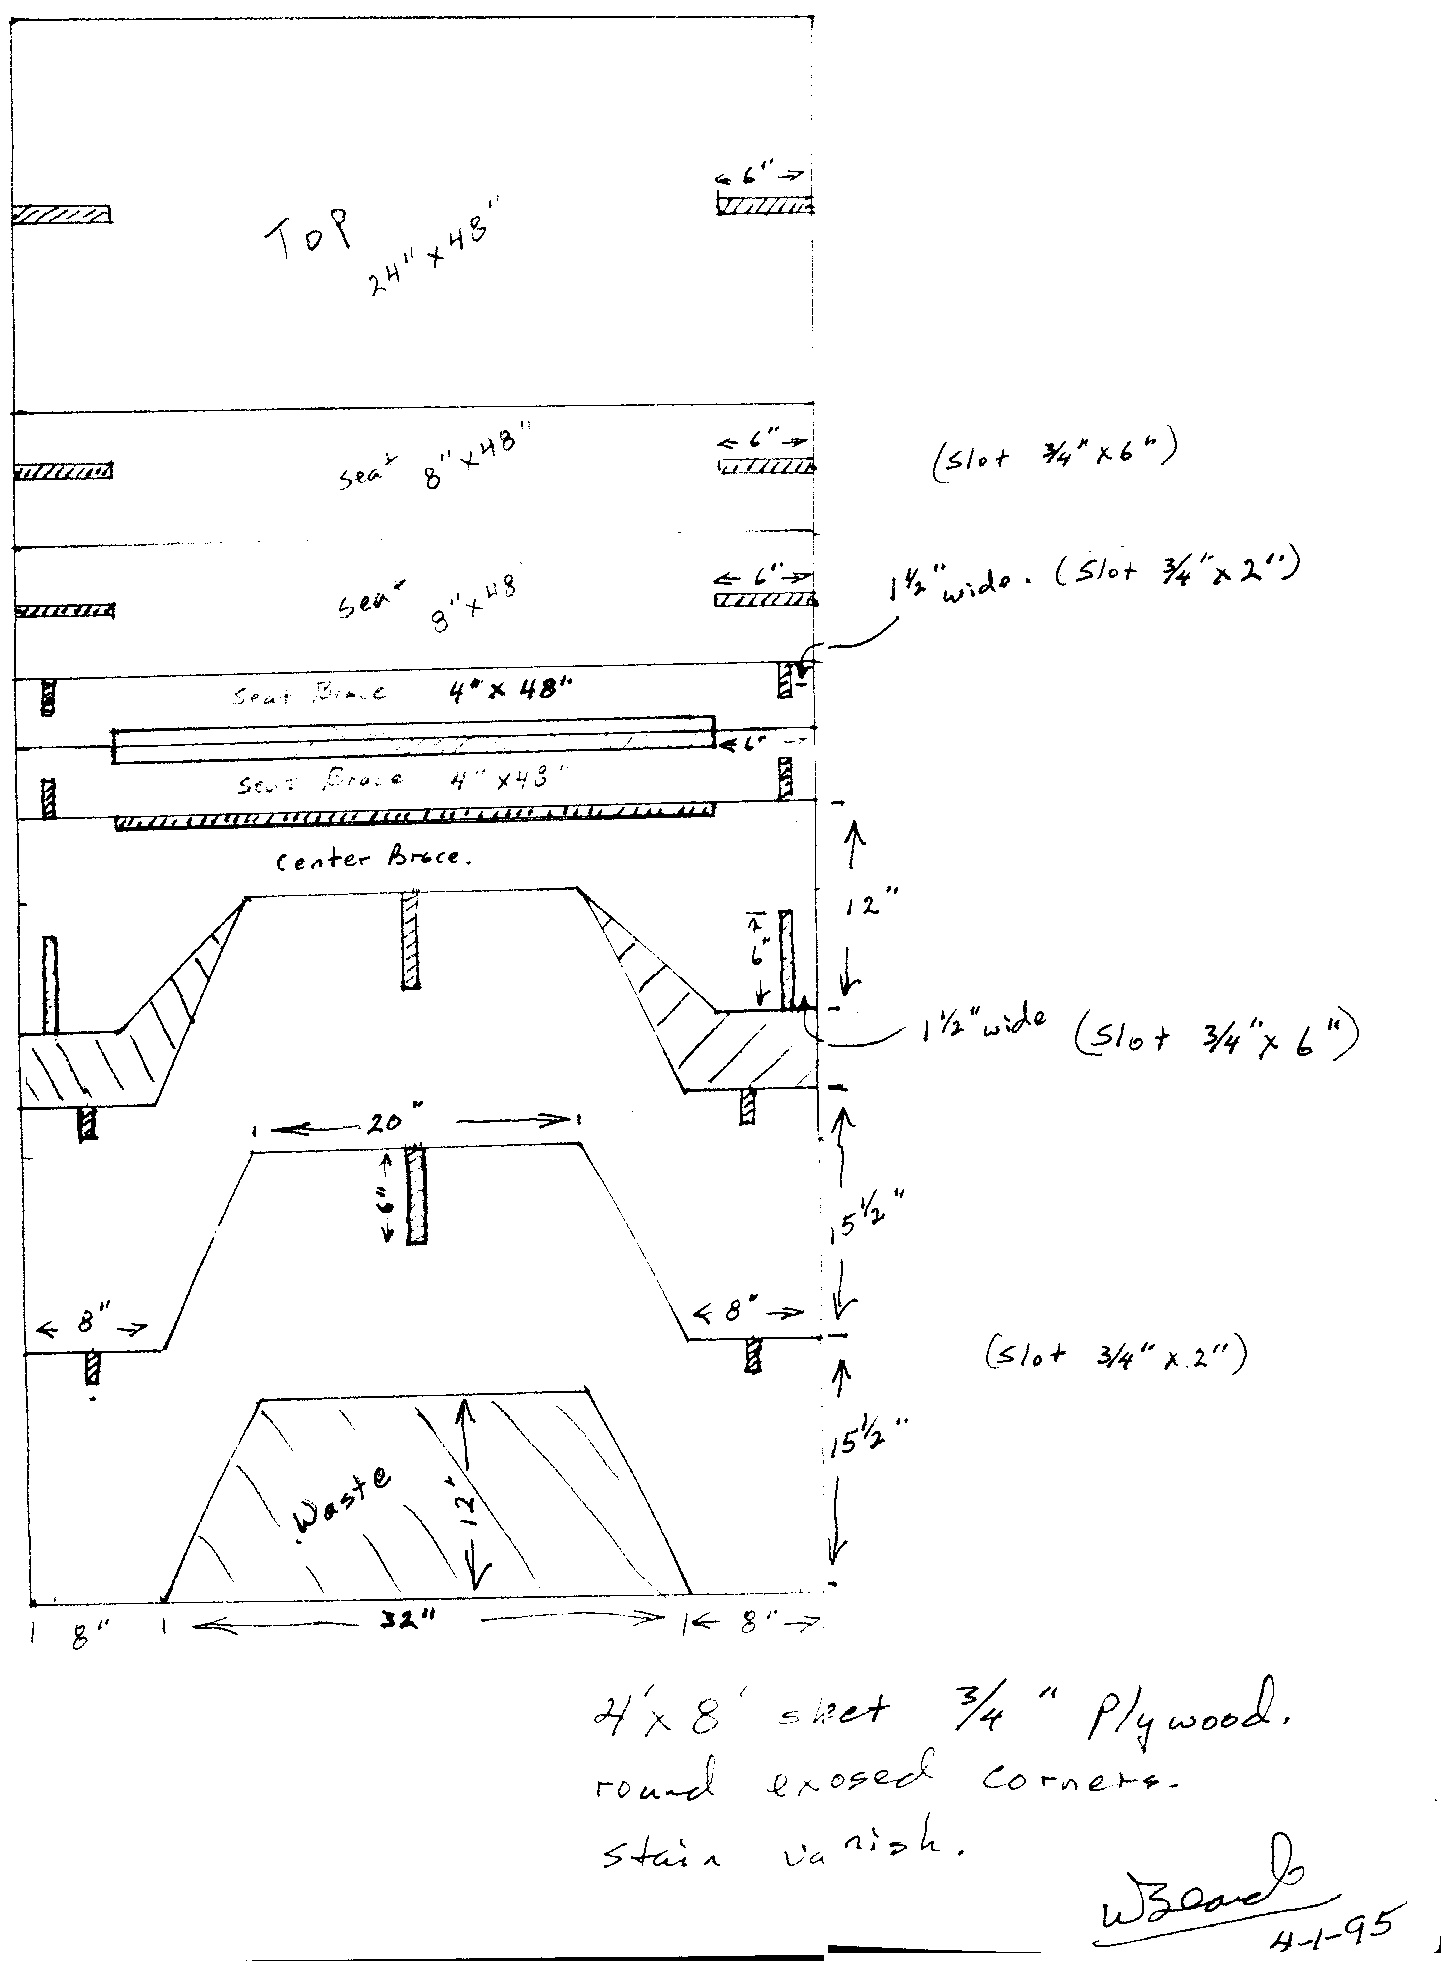 ← 6" →
TOP
24" x 48"
← 6" →
seat 8" x 48"
(Slot 3/4" x 6")
← 6" →
seat 8" x 48
1 1/2" wide. (Slot 3/4" x 2")
Seat Brace 4" x 48"
← 6" →
Seat Brace 4" x 48"
Center Brace.
12"
6"
1 1/2" wide (Slot 3/4" x 6")
20"
6"
15 1/2"
8"
8"
(Slot 3/4" x 2")
15 1/2"
Waste
12"
8" 32" 8"
4' x 8' sheet 3/4" Plywood.
round exosed corners.
stain vanish.
WBeard
4-1-95